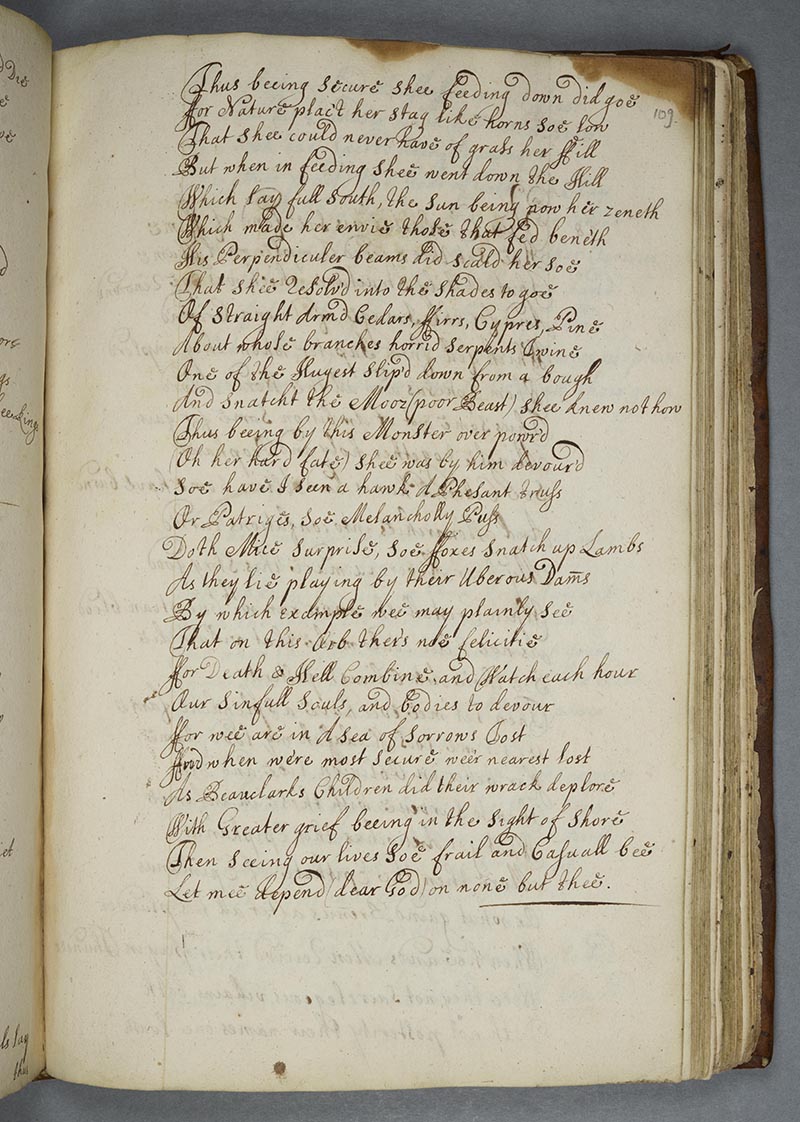 109.
Thus beeing secure shee feeding down did goe
ffor Nature plac't her stag like horns soe low
That shee could never have of grass her ffill
But when in feeding shee went down the Hill
Which lay full South, the sun being now her zeneth
Which made her envie those that fed beneth
His Perpendiculer beams did scald her soe
That shee resolv'd into the shades to goe
Of straight Arm'd Cedars, ffirrs, Cypres, Pine
About whose branches horrid serpents Twine
One of the Hugest slip'd down from a bough
And snatcht the Mooz (poor Beast) shee knew not how
Thus beeing by this Monster over powr'd
(Oh her hard fate) shee was by him devour'd
Soe have I seen a hawk A Phesant truss
Or Patriges, soe Melancholly Puss
Doth Mice surprise, soe ffoxes snatch up Lambs
As they lie playing by their Uberous Dam̄s
By which example wee may plainly see
That on this Orb ther's noe felicitie
ffor Death & Hell Combine, and Watch each hour
Our sinfull souls, and bodies to devour
ffor wee are in A sea of sorrows Tost
And when we're most secure wee'r nearest lost
As Beauclarks Children did their wrack deplore
With Greater grief beeing in the sight of shore
Then seeing our lives soe frail and Casuall bee
Let mee depend (dear God) on none but thee.